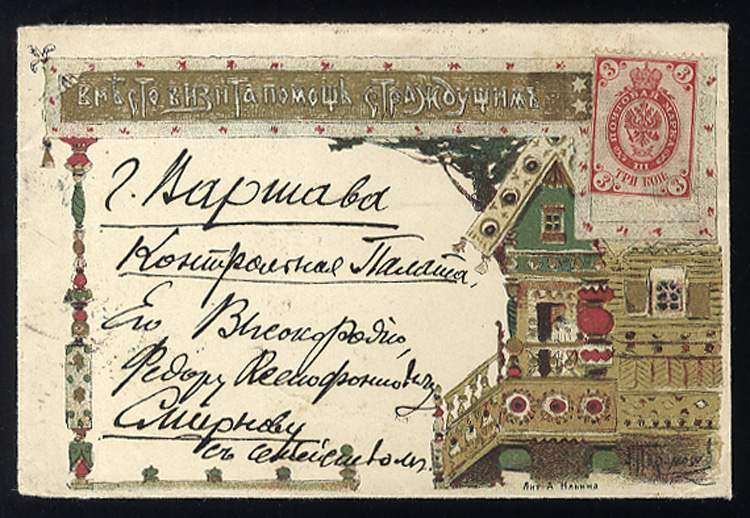 вмѣсто визита помощь страждущимъ
3 3
ПОЧТОВАЯ МАРКА
III
3 ТРИ КОП. 3
г. Варшава
Контрольная Палата,
Его Высокородію,
Федору Ксенофонтовичу
Смирнову
съ семействомъ.
Лит. А. Ильина